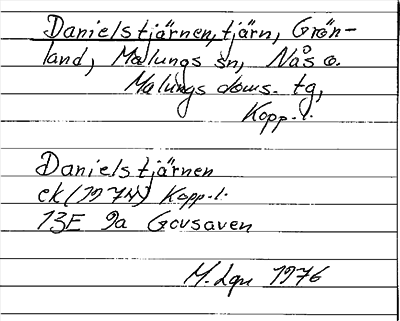 Danielstjärnen, tjärn, Grön-
land, Malungs sn, Nås o.
Malungs doms. tg,
Kopp. l.
Danielstjärnen
ek (1974) Kopp. l.
13E 9a Govsaven
M. 1976